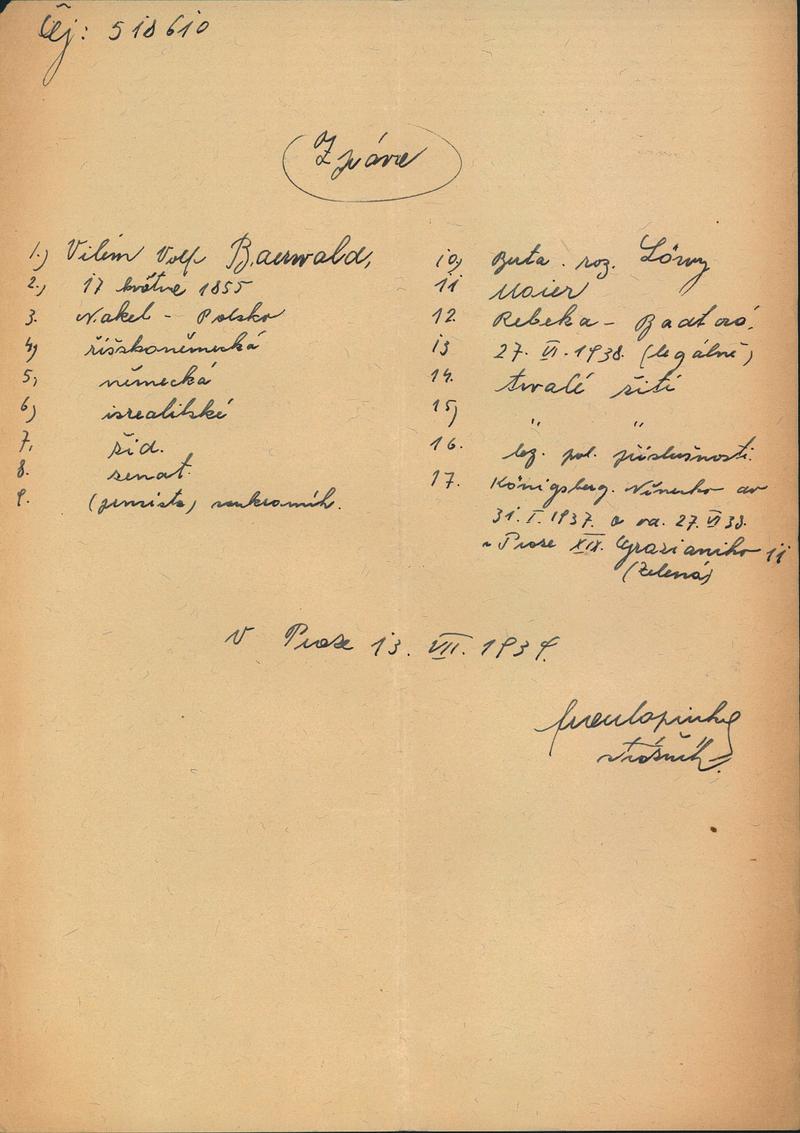 Čj: 518610
Zpráva
1.) Vilém Volf Baerwald,
2.) 17 května 1855
3. Nakel - Polsko
4) říšskoněmecká
5, německá
6) isrealitské
7, žid.
8. ženat.
9. (pensista) soukromík.
10) Berta roz. Löwy
11 Maier
12. Rebeka -
13 27. VI. 1938. (legálně)
14. trvalé žití
15) " "
16. bez pol. příslušnosti.
17. Königsberg. Německo do
31. I. 1937. a od. 27. VI 38.
v Praze XIX. Grazianiho 11
(Zelená)
V Praze 13. VII. 1939.
strážník.